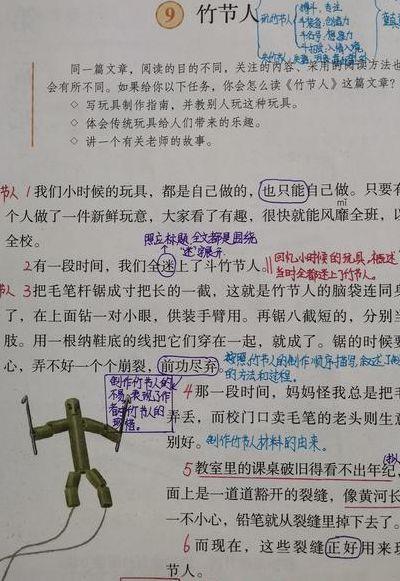 9 竹节人
玩竹节人
搏斗,专注
斗装备,创造力
斗名号,想象力
同一篇文章,阅读的目的不同,关注的内容、采用的阅读方法也
会有所不同。如果给你以下任务,你会怎么读《竹节人》这篇文章?
◇ 写玩具制作指南,并教别人玩这种玩具。
◇ 体会传统玩具给人们带来的乐趣。
◇ 讲一个有关老师的故事。
节人 1我们小时候的玩具,都是自己做的,也只能自己做。只要有
mǐ
个人做了一件新鲜玩意,大家看了有趣,很快就能风靡全班,以
全校。
照应标题,全文都是围绕
"迷"字展开
2有一段时间,我们全迷上了斗竹节人。
因为小时候的玩具,概述
当时全都迷上了竹节人。
节人 3把毛笔杆锯成寸把长的一截,这就是竹节人的脑袋连同身
了,在上面钻一对小眼,供装手臂用。再锯八截短的,分别当
肢。用一根纳鞋底的线把它们穿在一起,就成了。锯的时候要
心,弄不好一个个崩裂,前功尽弃。
按照竹节人的制作顺序描写,叙述了
的方法和过程。
制作竹节人的
不易,表现了作
者对竹节人的
珍惜。
4那一段时间,妈妈怪我总是把毛
弄丢,而校门口卖毛笔的老头则生意
别好。 制作竹节人材料的由来。
5教室里的课桌破旧得看不出年纪,
面上是一道道豁开的裂缝,像黄河长
一不小心,铅笔就从裂缝里掉下去了。
6而现在,这些裂缝正好用来玩
节人。